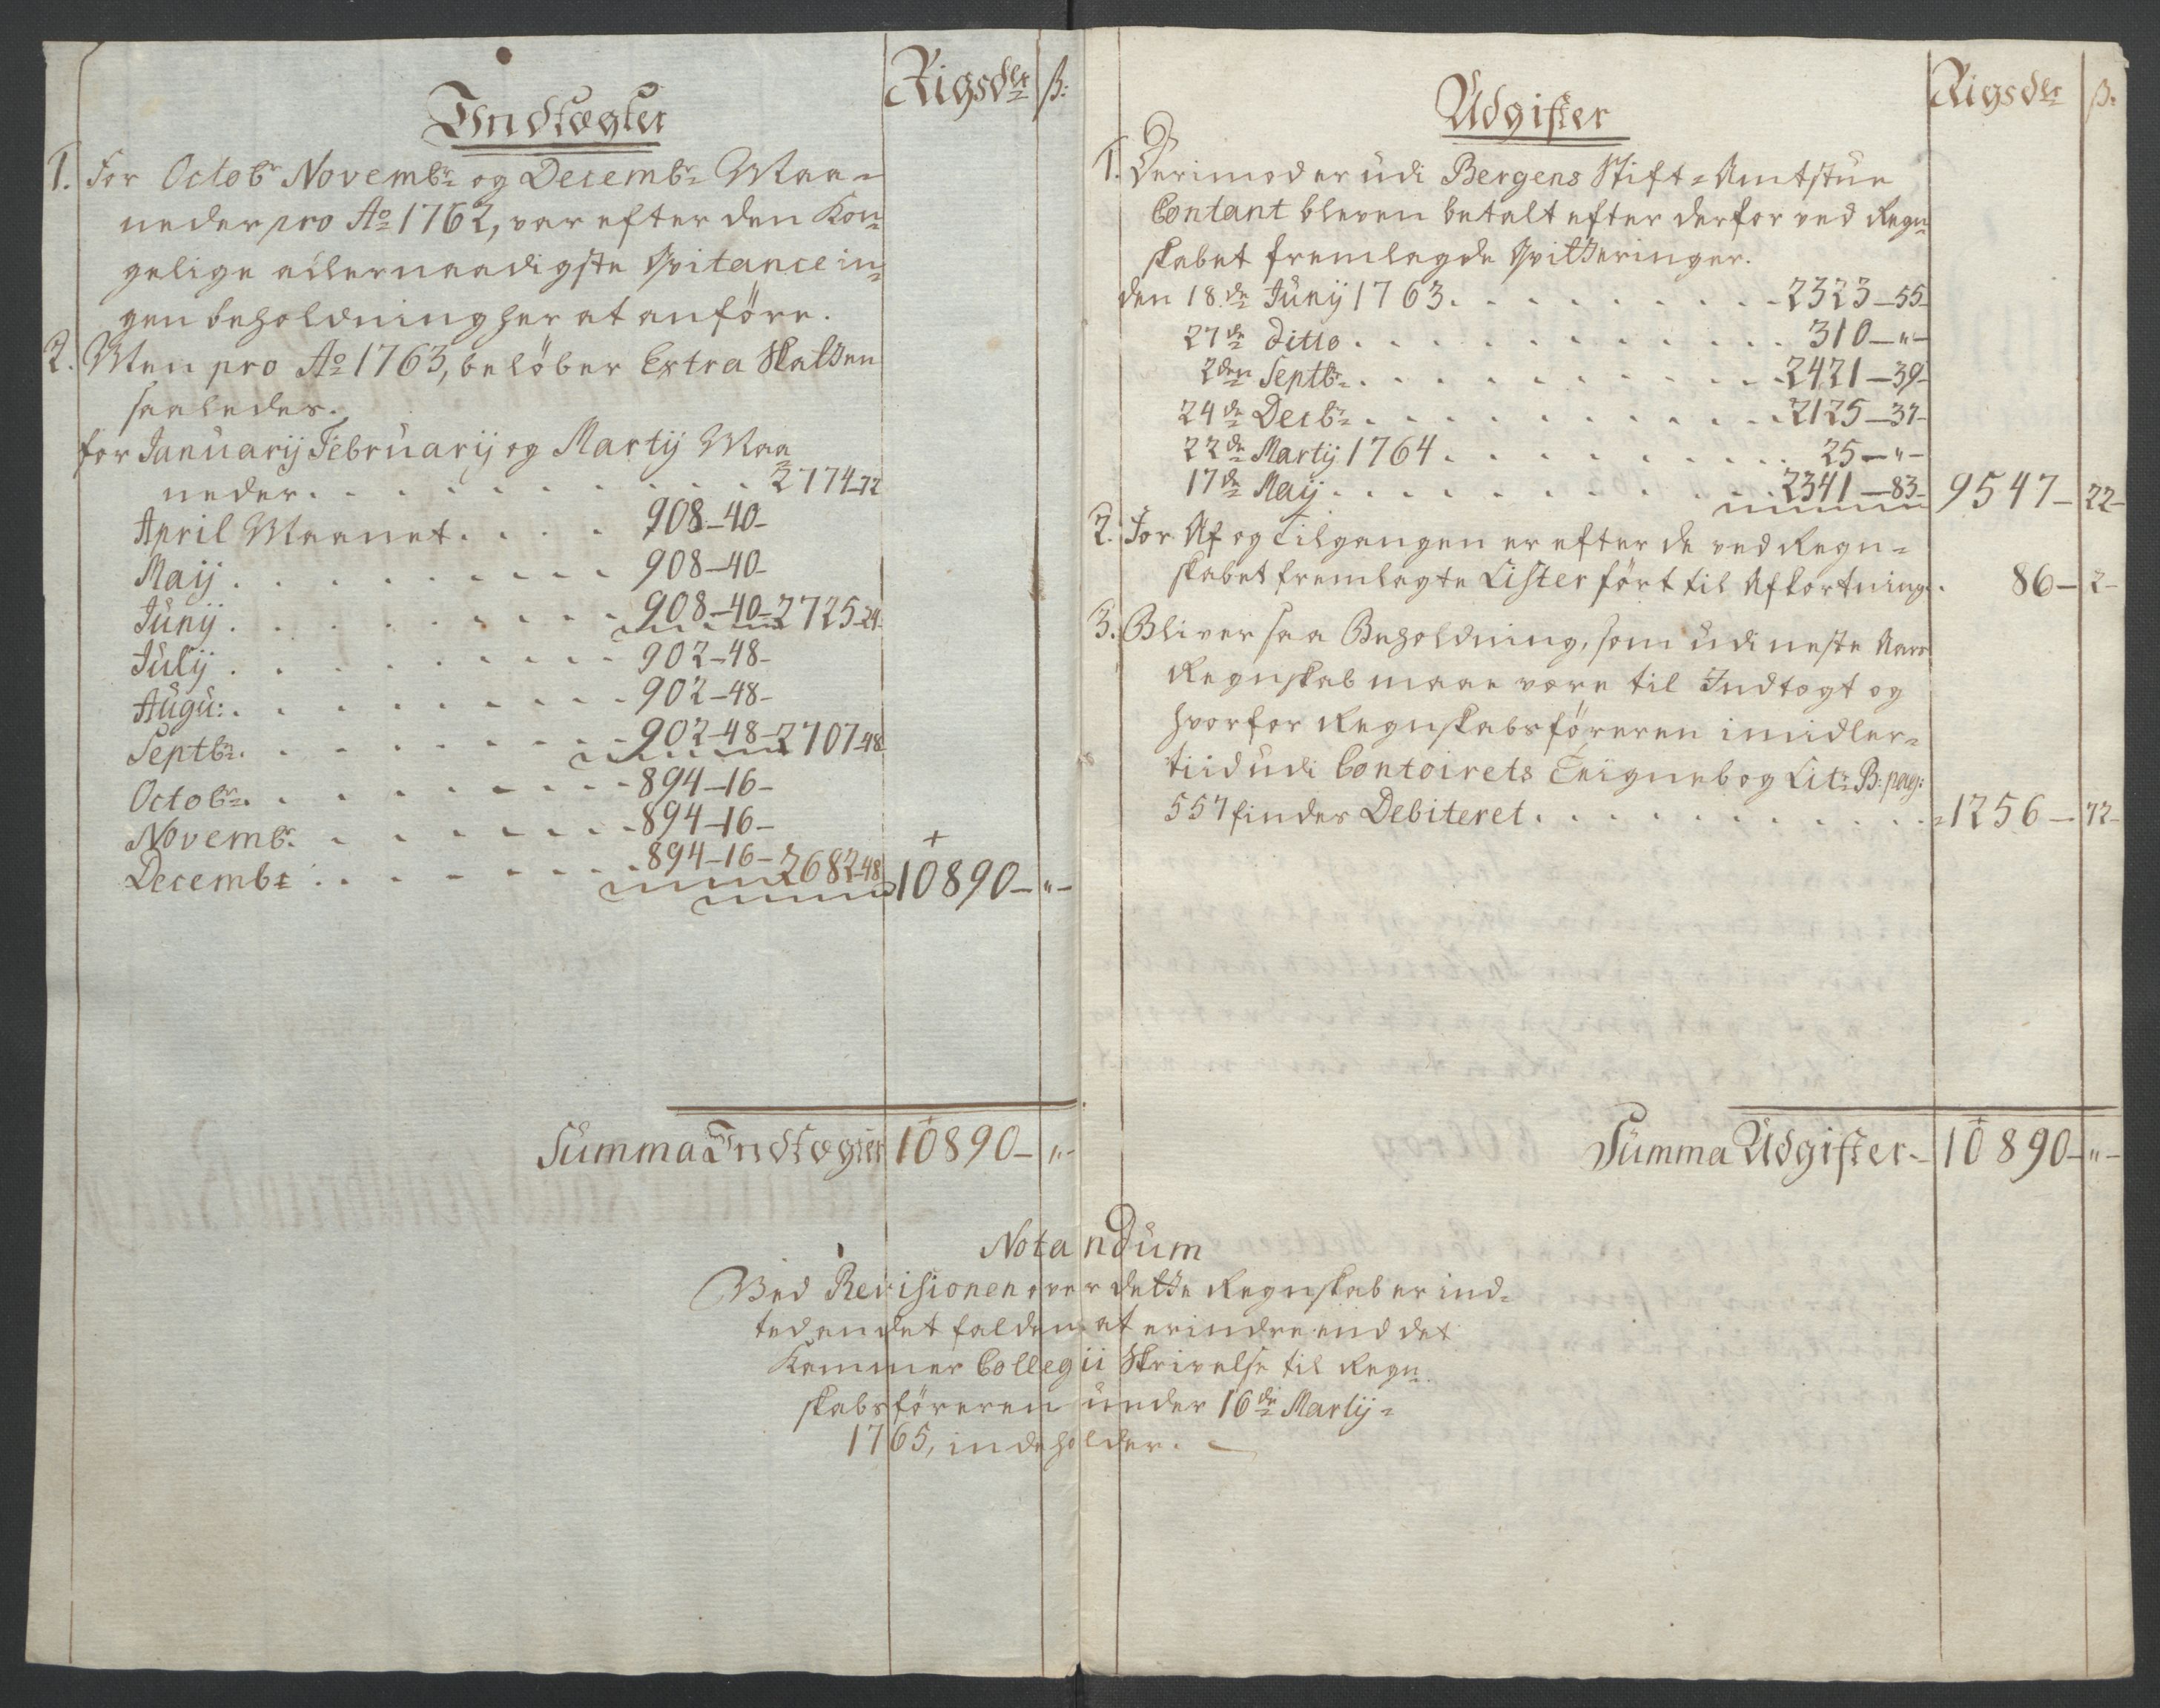 Indtægter
Rigsdlr ß:
1. For Octobr Novembr og Decembr Maa-
neder pro Ao 1762, var efter den Kon-
gelige allernaadigste Qvitance in-
gen beholdning her at anföre.
2. Men pro Ao 1763, belöber Extra Skatten
saaledes.
for Januarij Februarij og Martij Maa-
neder. . . . . . . . . . 2774-72
April Maanet. . . . 908-40-
Maij . . . . . . . . . 908-40-
Junij . . . . . . . . . 908-40- 2725-24-
Julij . . . . . . . . . 902-48-
Augu: . . . . . . . . . 902-48-
Septbr. . . . . . . . . 902-48- 2707-48
Octobr. . . . . . . . . 894-16-
Novembr. . . . . . . . 894-16-
Decembr . . . . . . . . 894-16- 2682-48 10890- "-
Summa Indtægter 10890- "-
Udgifter
Rigsdlr ß:
1. Derimod er udi Bergens Stift-Amtstue
Contant bleven betalt efter derfor ved Regn-
skabet fremlagde Qvitteringer.
den 18de Junij 1763. . . . . . . . . 2323-55-
27de ditto . . . . . . . . . . 310-"-
2den Septbr. . . . . . . . . . 2421-39-
24de Decbr. . . . . . . . . . 2125-37-
22de Martij 1764 . . . . . . . . . 25-"-
17de Maij . . . . . . . . . . 2341-83- 9547- 22-
2. For Af og tilgangen er efter de ved Regn-
skabet fremlagte Lister fört til Afkortning. 86- 2-
3. Bliver saa Beholdning, som udi neste Aars
Regnskab maae være til Indtægt og
hvorfor Regnskabsföreren imidler-
tiid udi Contoirets Teignebog Litr B: pag:
557 findes Debiteret. . . . . . . . . . 1256- 72-
Summa Udgifter- 10890- "-
Notandum
Ved Revisionen over dette Regnskab er ind-
ted andet falden at erindre end det
Kammer Collegii Skrivelse til Regn-
skabsföreren under 16de Martij
1765, indeholder.